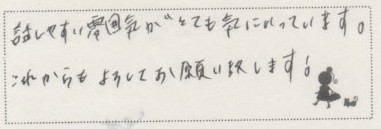 話しやすい雰囲気がとても気に入っています。
これからもよろしくお願い致します!